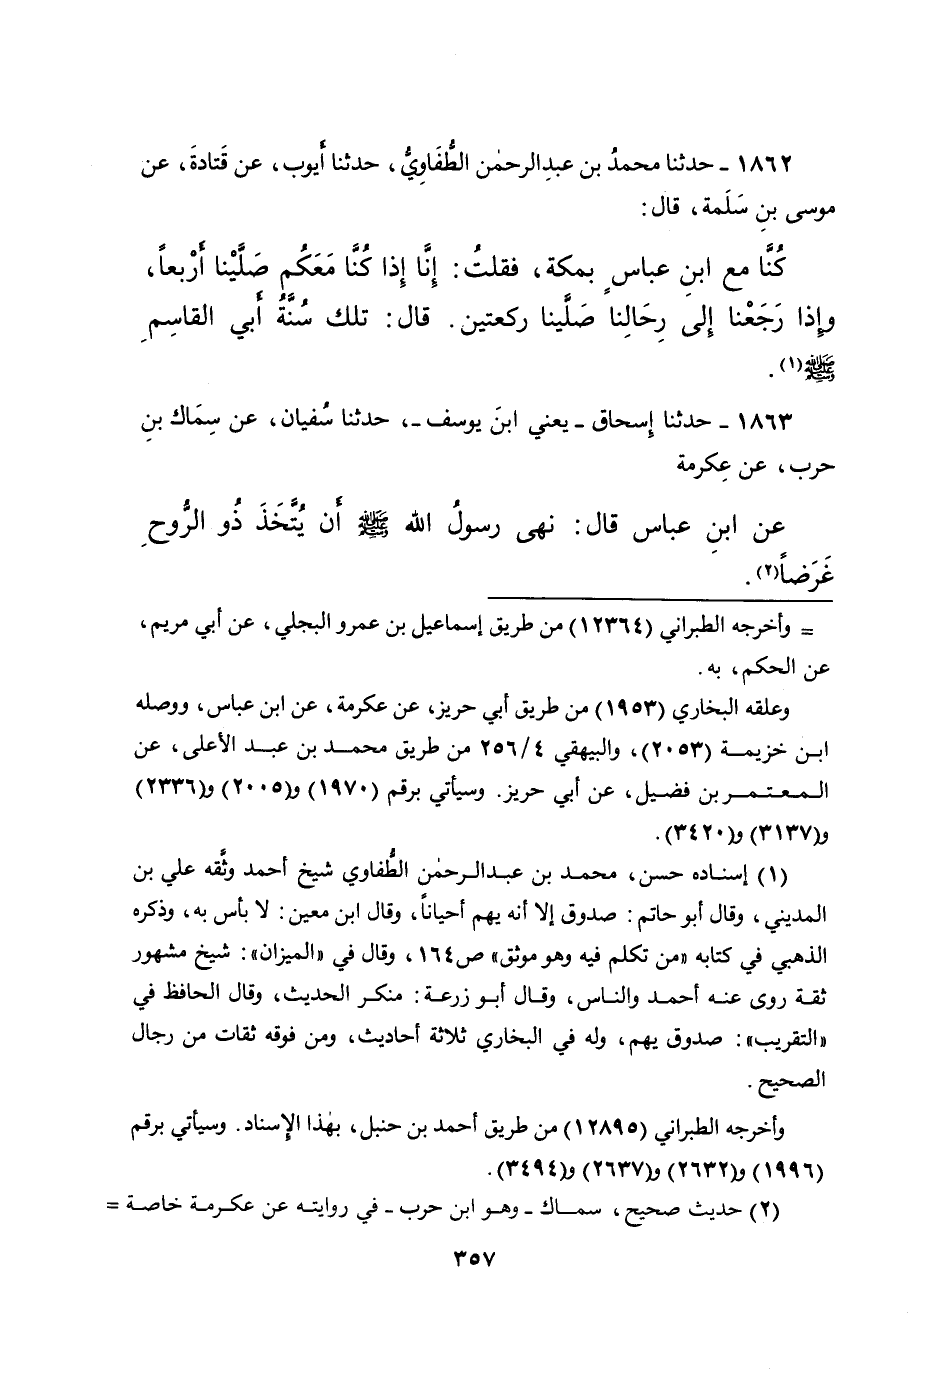 ١٨٦٢ ـ حدثنا محمدُ بن عبدِالرحمٰن الطُّفَاوِيُّ، حدثنا أيوب، عن قَتادةَ، عن
موسى بنِ سَلَمة، قال:
كُنَّا مع ابنِ عباسٍ بمكة، فقلتُ: إِنَّا إذا كُنَّا مَعَكُم صَلَّيْنا أَرْبعاً،
وإِذا رَجَعْنا إِلى رِحَالِنا صَلَّينا ركعتين. قال: تلك سُنَّةُ أَبي القاسِمِ
ﷺ(١).
١٨٦٣ ـ حدثنا إسحاق ـ يعني ابنَ يوسف ـ، حدثنا سُفيان، عن سِمَاك بنِ
حرب، عن عِكرمة
عن ابنِ عباس قال: نهى رسولُ الله ﷺ أَن يُتَّخَذَ ذُو الرُّوحِ
غَرَضاً(٢).
= وأخرجه الطبراني (١٢٣٦٤) من طريق إسماعيل بن عمرو البجلي، عن أبي مريم،
عن الحكم، به.
وعلقه البخاري (١٩٥٣) من طريق أبي حريز، عن عكرمة، عن ابن عباس، ووصله
ابن خزيمة (٢٠٥٣)، والبيهقي ٢٥٦/٤ من طريق محمد بن عبد الأعلى، عن
المعتمر بن فضيل، عن أبي حريز. وسيأتي برقم (١٩٧٠) و(٢٠٠٥) و(٢٣٣٦)
و(٣١٣٧) و(٣٤٢٠).
(١) إسناده حسن، محمد بن عبدالرحمٰن الطُّفاوي شيخ أحمد وثَّقه علي بن
المديني، وقال أبو حاتم: صدوق إلا أنه يهم أحياناً، وقال ابن معين: لا بأس به، وذكره
الذهبي في كتابه «من تكلم فيه وهو موثق» ص١٦٤، وقال في «الميزان»: شيخ مشهور
ثقة روى عنه أحمد والناس، وقال أبو زرعة: منكر الحديث، وقال الحافظ في
«التقريب»: صدوق يهم، وله في البخاري ثلاثة أحاديث، ومن فوقه ثقات من رجال
الصحيح.
وأخرجه الطبراني (١٢٨٩٥) من طريق أحمد بن حنبل، بهٰذا الإسناد. وسيأتي برقم
(١٩٩٦) و(٢٦٣٢) و(٢٦٣٧) و(٣٤٩٤).
(٢) حديث صحيح، سماك ـ وهو ابن حرب ـ في روايته عن عكرمة خاصة =
٣٥٧